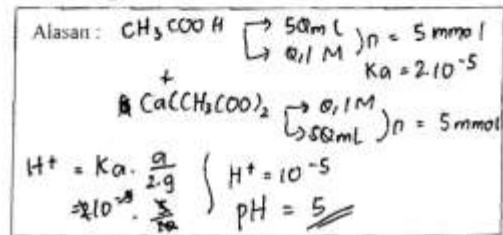 Alasan : CH₃COOH → 50mL
→ 0,1 M ) n = 5 mmol
Ka = 2.10⁻⁵
+
Ca(CH₃COO)₂ → 0,1M
→ 50mL ) n = 5 mmol
H⁺ = Ka . a/2.g
H⁺ = 10⁻⁵
= 2.10⁻⁵ . 5/10
pH = 5